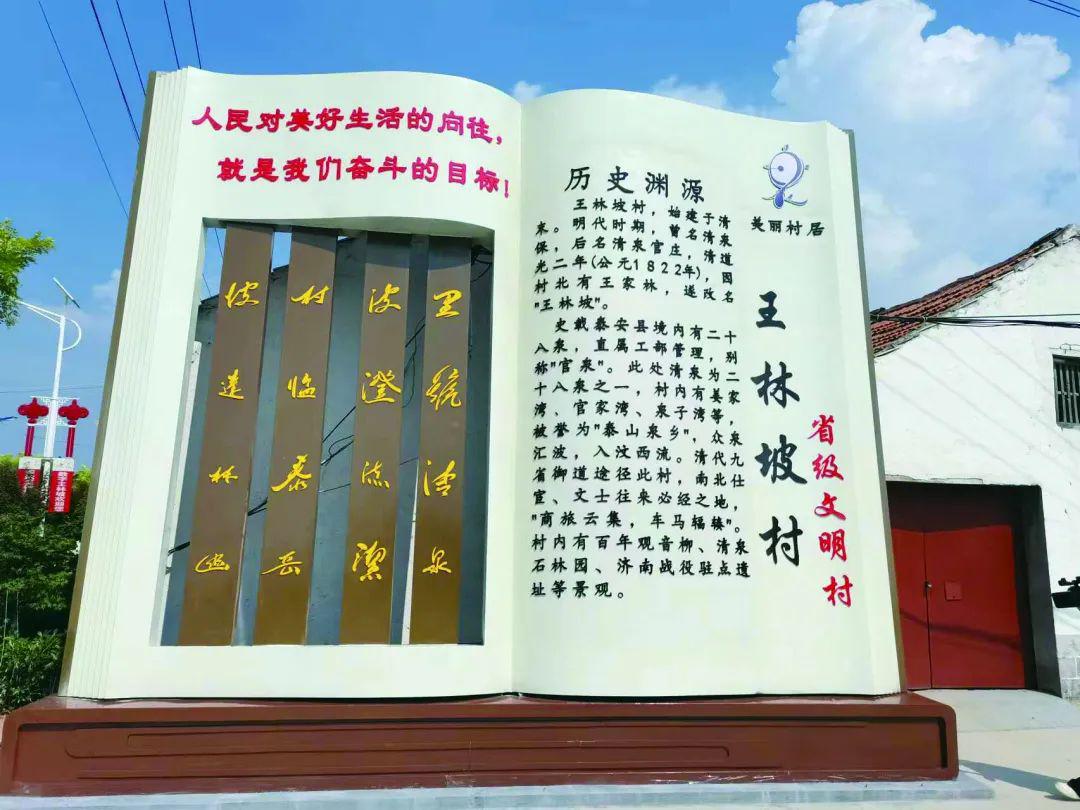 人民对美好生活的向往，
就是我们奋斗的目标！
里號清泉
波澄流潔
村临泰岳
坡連林幽
历史渊源
王林坡村，始建于清
末。明代时期，曾名清泉
保，后名清泉官庄，清道
光二年(公元1822年)，因
村北有王家林，遂改名
"王林坡"。
史载泰安县境内有二十
八泉，直属工部管理，别
称"官泉"。此处清泉为二
十八泉之一，村内有姜家
湾、官家湾、泉子湾等，
被誉为"泰山泉乡"，众泉
汇波，入汶西流。清代九
省御道途径此村，南北仕
宦、文士往来必经之地，
"商旅云集，车马辐辏"。
村内有百年观音柳、清泉
石林园、济南战役驻点遗
址等景观。
美丽村居
王林坡村
省级文明村